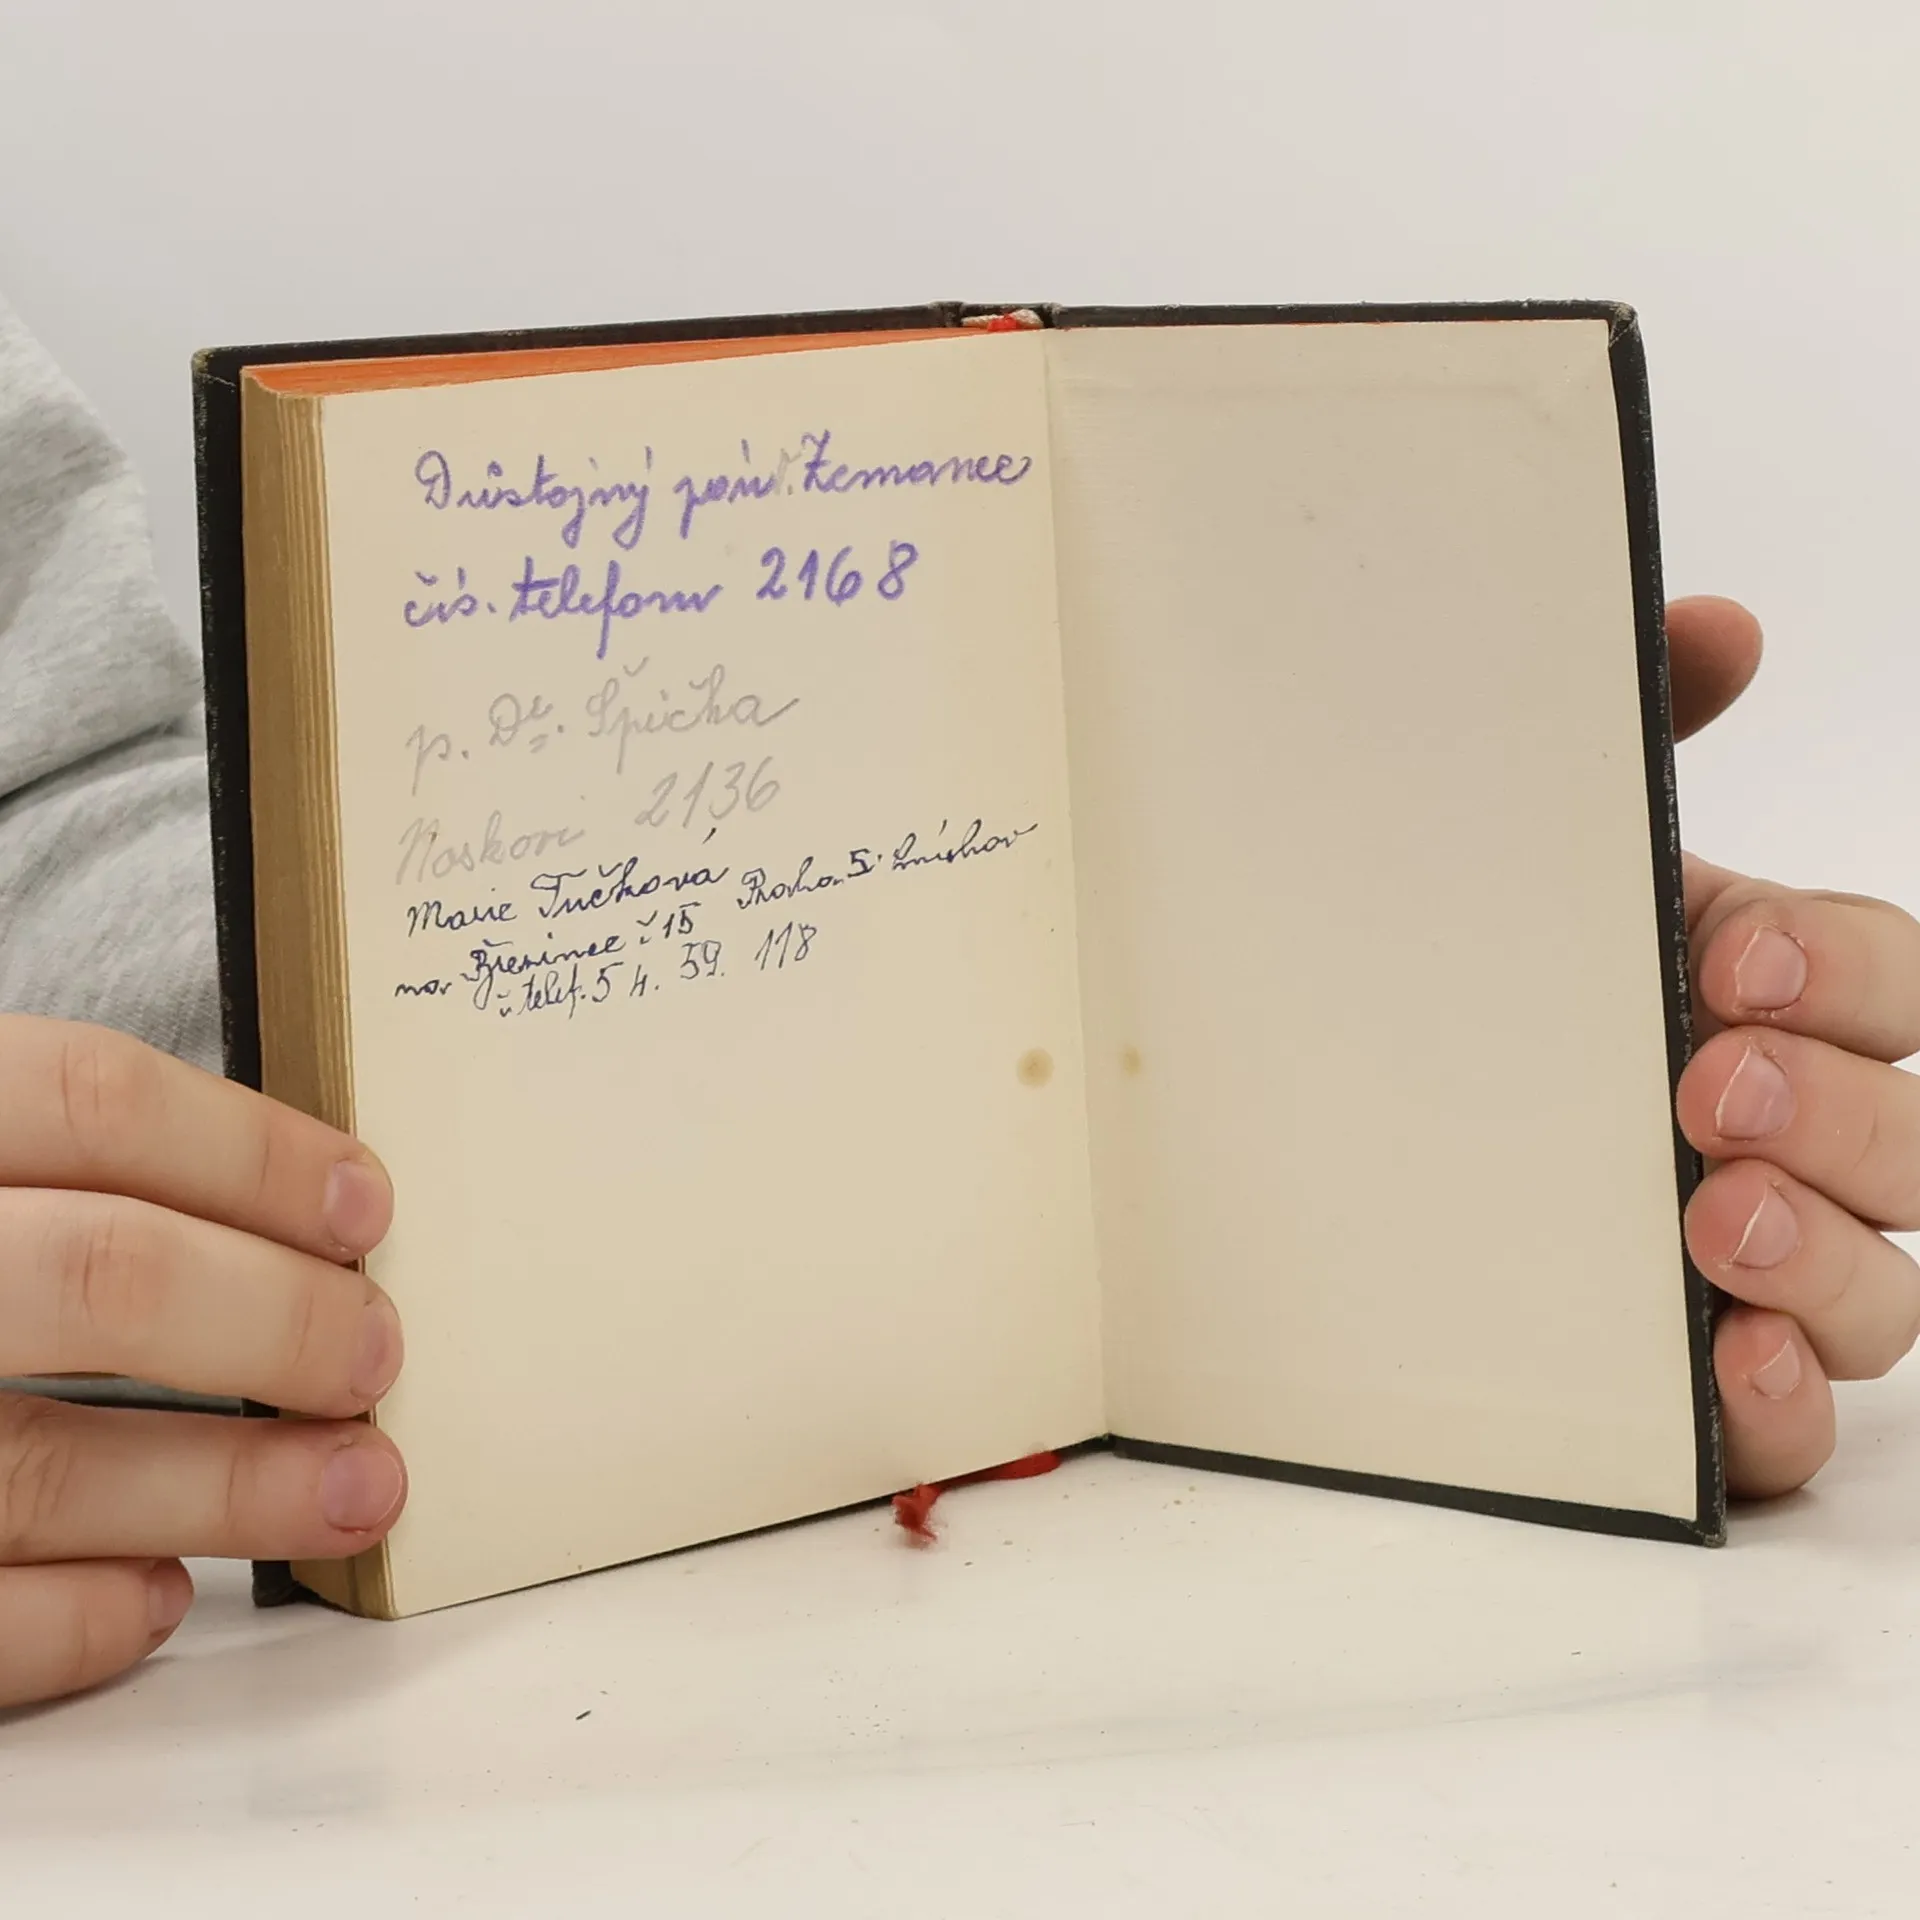 Důstojný pán. Zemanec
čís. telefonu 2168
p. Dr. Špička
Noskovi 2136
Marie Tučková Praha 5. Smíchov
na Březince č 15
č telef. 54. 59. 118